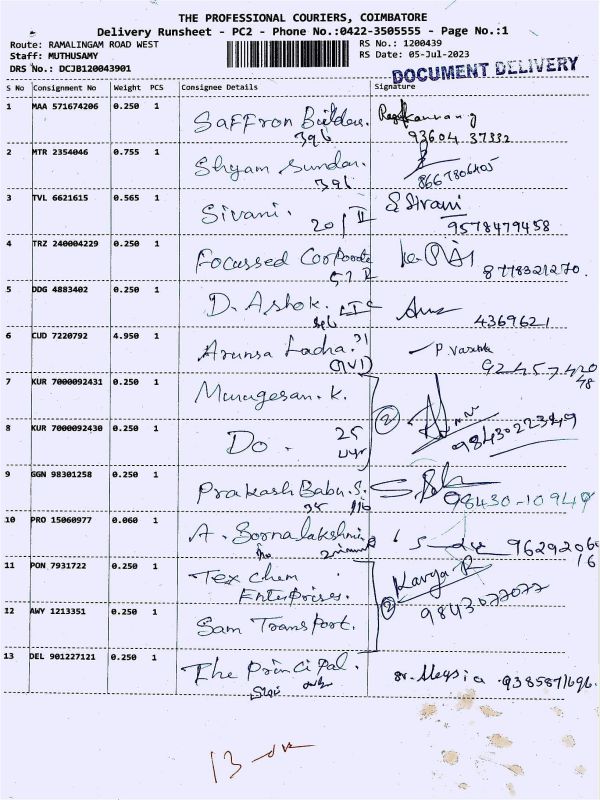 THE PROFESSIONAL COURIERS, COIMBATORE
Delivery Runsheet - PC2 - Phone No.:0422-3505555 - Page No.:1
Route: RAMALINGAM ROAD WEST RS No.: 1200439
Staff: MUTHUSAMY RS Date: 05-Jul-2023
DRS No.: DCJB120043901
DOCUMENT DELIVERY
S No Consignment No Weight PCS Consignee Details Signature
1 MAA 571674206 0.250 1 Saffron Builders.
396 93604 37332
2 MTR 2354046 0.755 1 Shyam Sundar.
396 8667806405
3 TVL 6621615 0.565 1 Sivani. S. Sivani
20/II 9578479458
4 TRZ 240004229 0.250 1 Focussed Corporate
8778321270.
5 DDG 4883402 0.250 1 D. Ashok.
4369621
6 CUD 7220792 4.950 1 Arunsa Ladha.
92457420
48
7 KUR 7000092431 0.250 1 Murugesan. K.
2
8 KUR 7000092430 0.250 1 Do. 25
9843022349
9 GGN 98301258 0.250 1 Prakash Babu. S.
98430-10949
10 PRO 15060977 0.060 1 A. Sornalakshmi
9629206
16
11 PON 7931722 0.250 1 Tex Chem Kavya R
Enterprises. 2
9843077077
12 AWY 1213351 0.250 1 Sam Transport.
13 DEL 901227121 0.250 1 The Principal. Sr. Aleysia 9385871696.
13